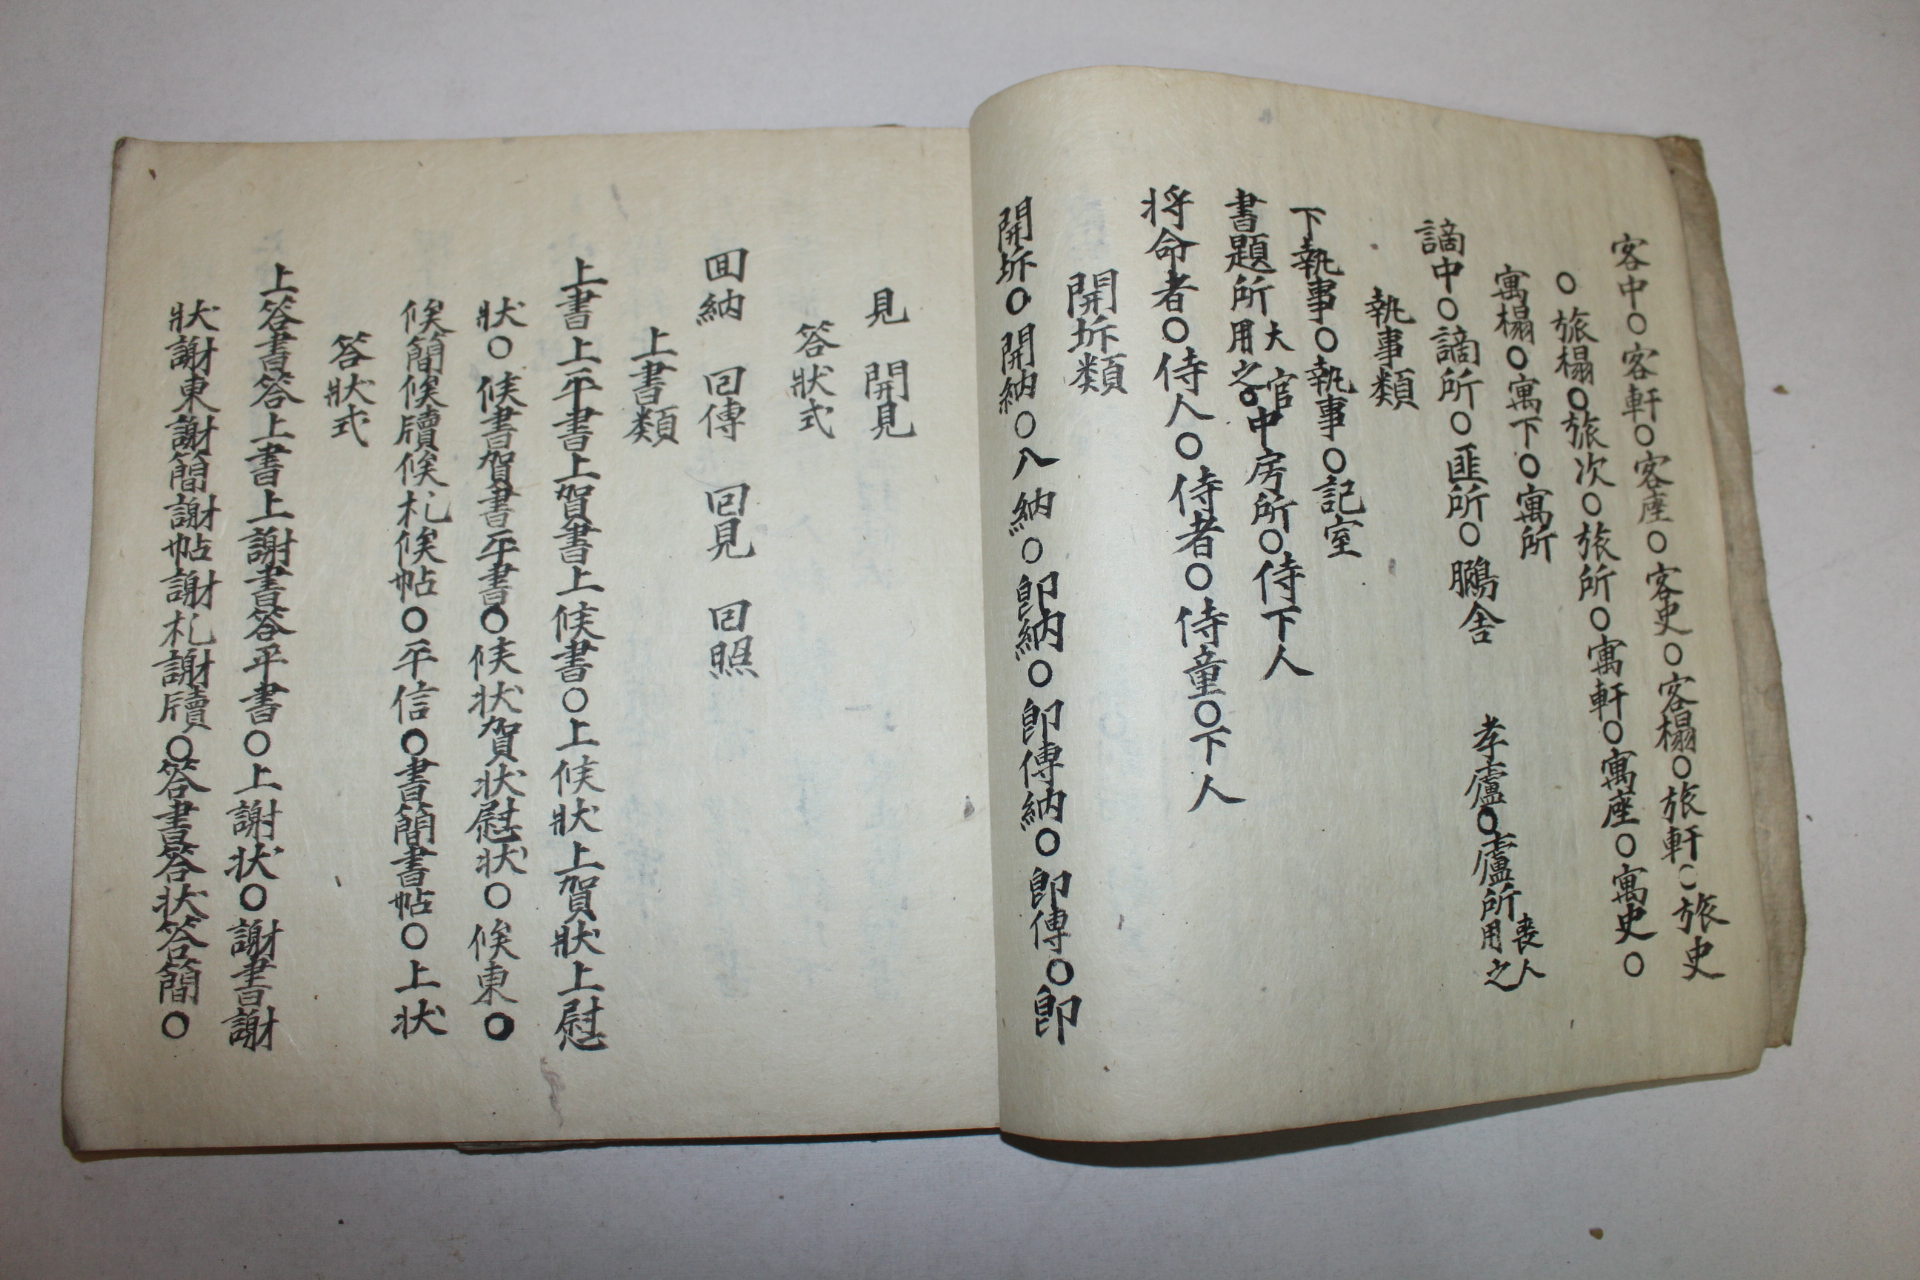 客中○客軒○客座○客史○客榻○旅軒○旅史
○旅榻○旅次○旅所○寓軒○寓座○寓史○
寓榻○寓下○寓所
謫中○謫所○匪所○鵩舍 孝廬○廬所喪人用之
執事類
下執事○執事○記室
書題所大官用之○中房所○侍下人
将命者○侍人○侍者○侍童○下人
開坼類
開坼○開納○入納○即納○即傳納○即傳○即
見 開見
答狀式
回納 回傳 回見 回照
上書類
上書上平書上賀書上候書○上候狀上賀狀上慰
狀○候書賀書平書○候狀賀狀慰狀○候柬○
候簡候牘候札候帖○平信○書簡書帖○上狀
答狀式
上答書答上書上謝書答平書○上謝狀○謝書謝
狀謝柬謝簡謝帖謝札謝牘○答書答狀答簡○